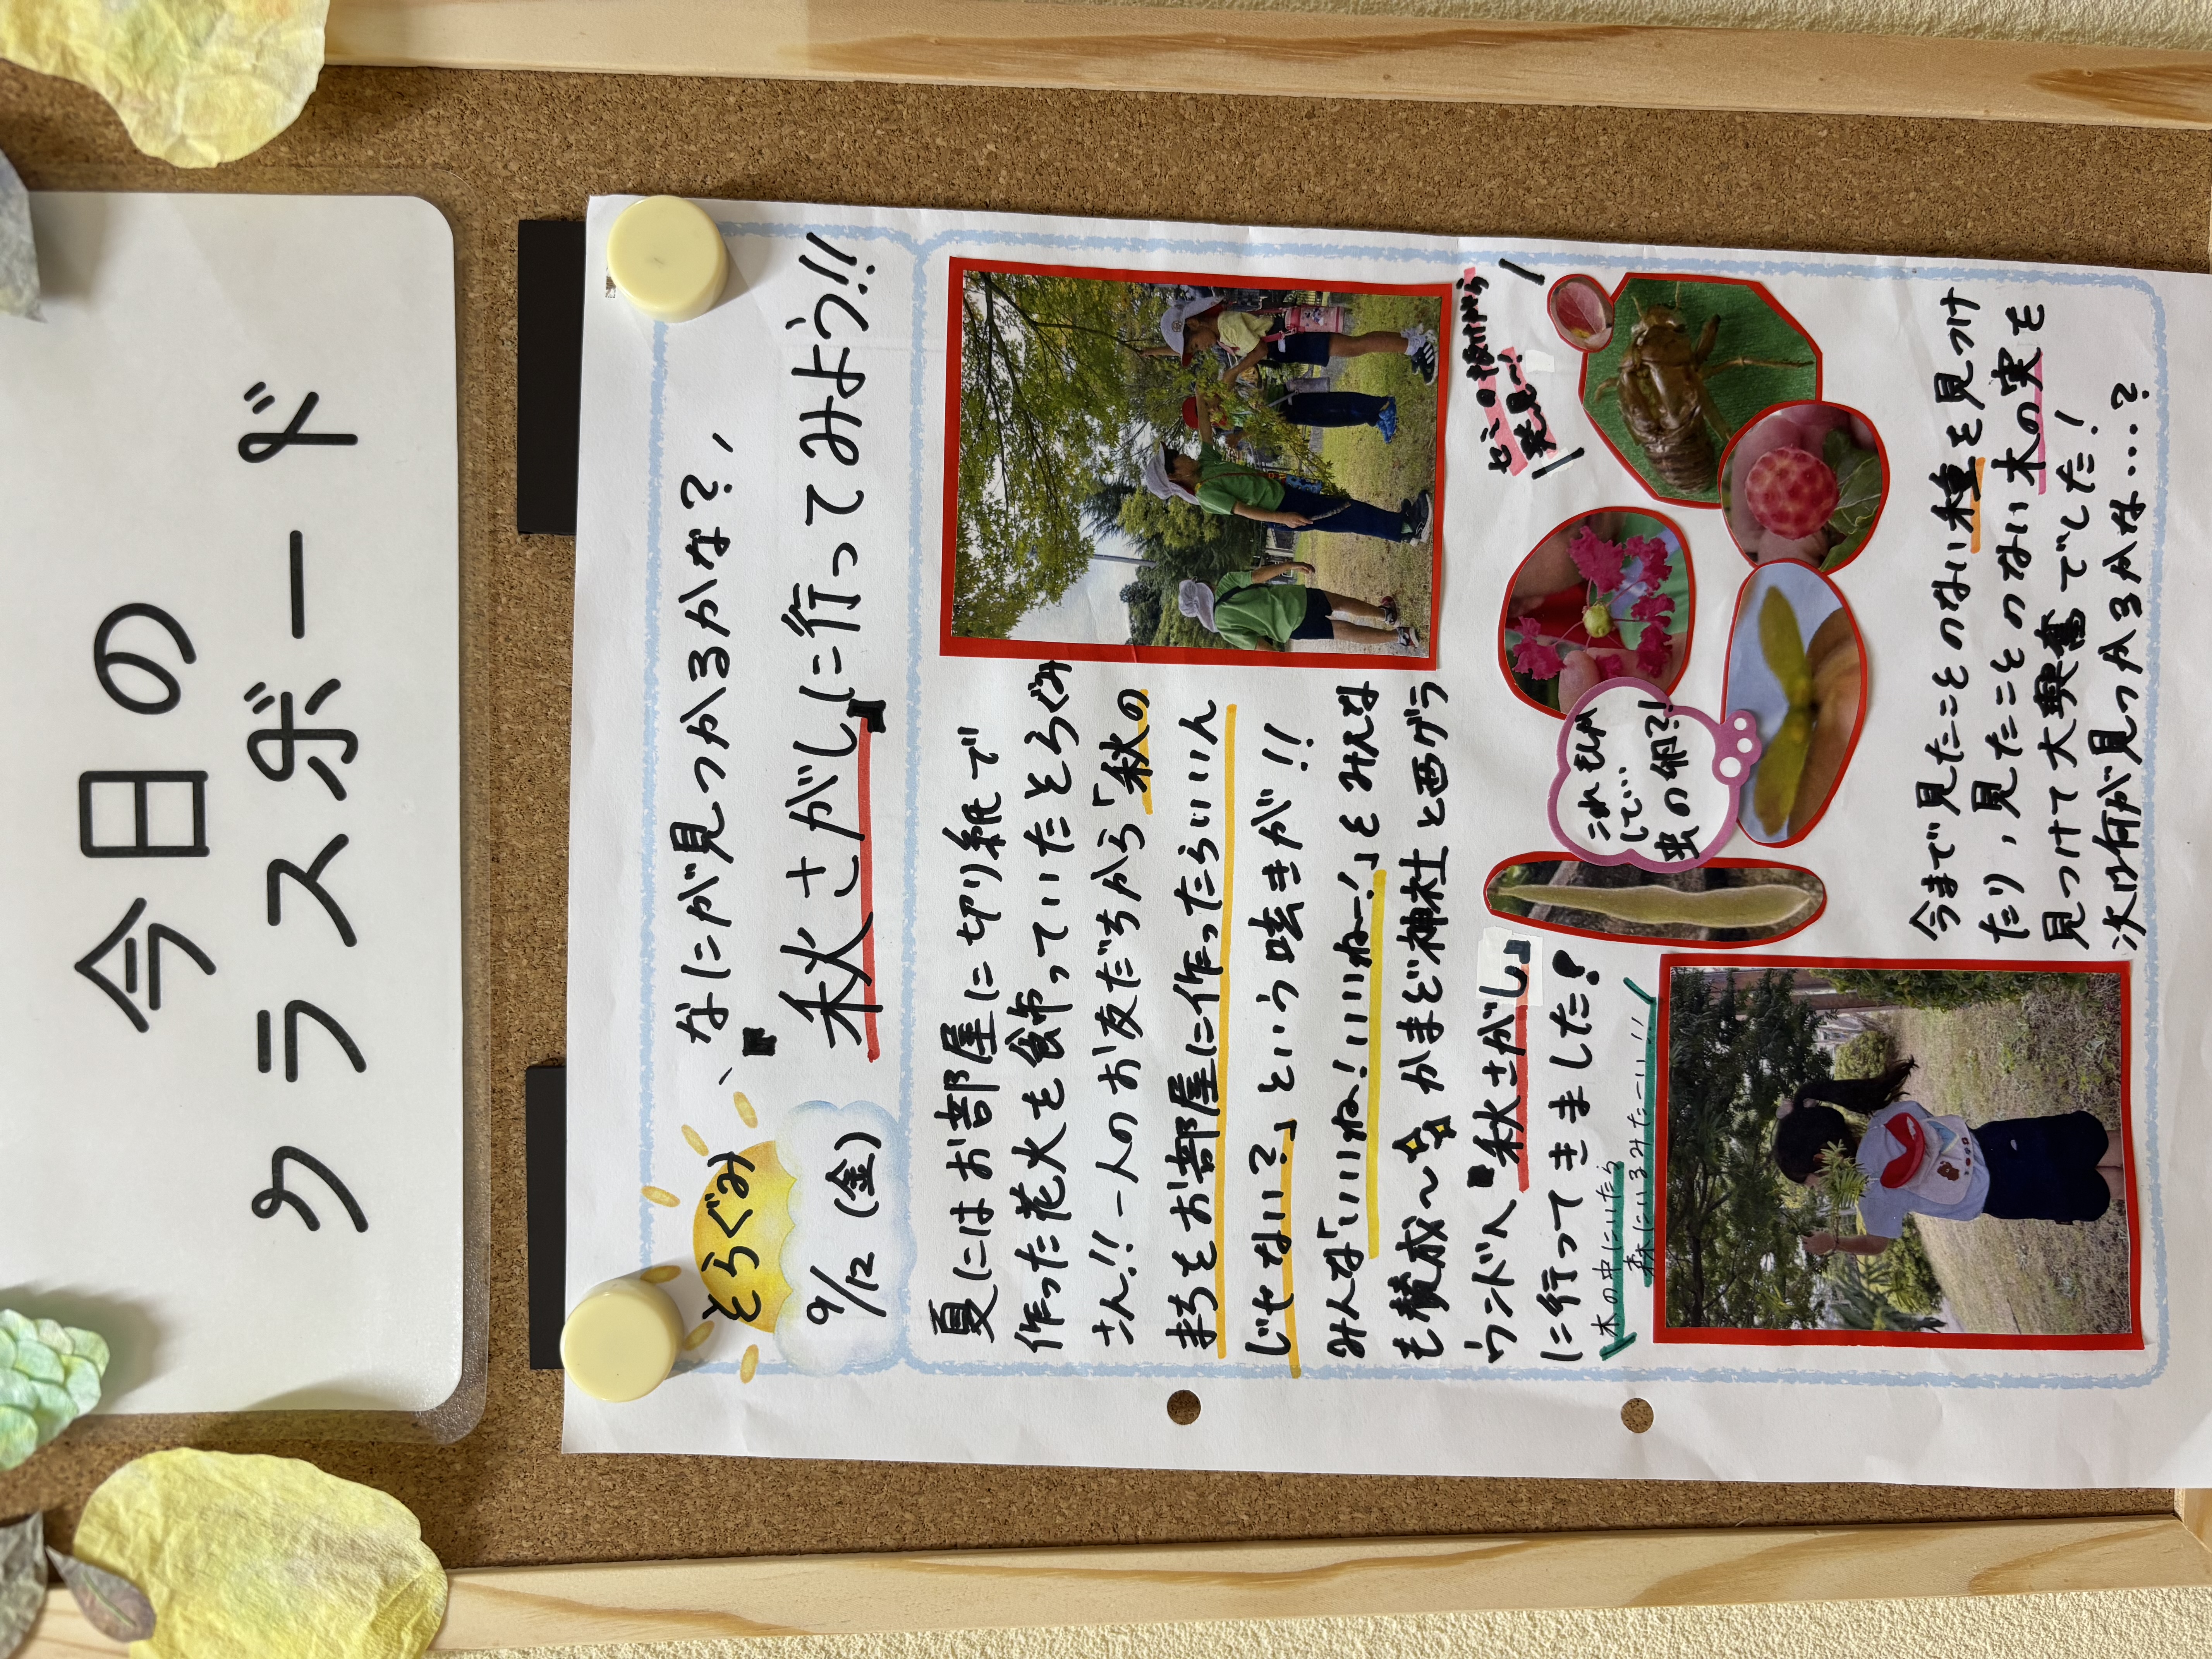 今日の
クラスボード
とらぐみ
9/12(金)
なにが見つかるかな?
秋さがしに行ってみよう!!
夏にはお部屋に切り紙で
作った花火を飾っていたとらぐみ
さん!!一人のお友だちから「秋の
まちをお部屋に作ったらいいん
じせない?」という呟きが!!
みんな「いいね!いいねー!」とみんな
も賛成〜 かまど神社と西グラ
ウンドへ"秋さがし"
に行ってきました!
木の中にいたら
森にいるみたーい!!
セミの抜けがら
発見〜!
これもしか
して…
虫の卵?!
今まで見たことのない種を見つけ
たり、見たことのない木の実を
見つけて大興奮でした!
次は何が見つかるかな…?